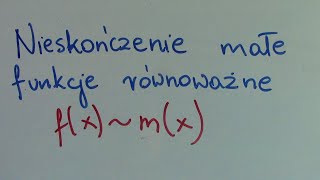 Nieskończenie małe
funkcje równoważne
f(x)~m(x)